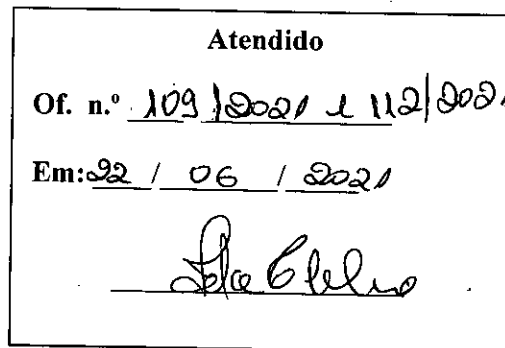 Atendido
Of. n.º 109/2021 e 112/2021
Em: 22 / 06 / 2021